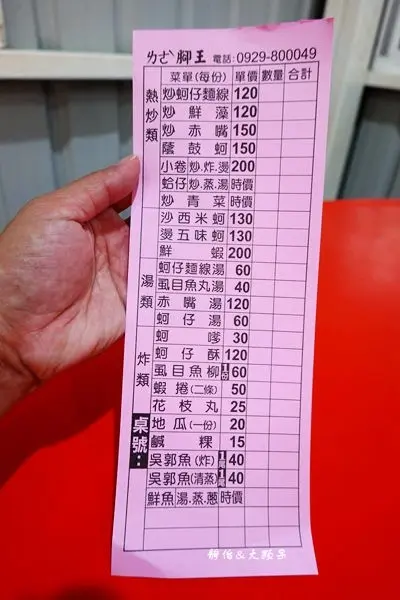 ㄌㄜˋ腳王 電話:0929-800049
菜單(每份) 單價 數量 合計
熱炒類
炒蚵仔麵線 120
炒鮮藻 120
炒赤嘴 150
蔭鼓蚵 150
小卷炒.炸.燙 200
蛤仔炒.蒸.湯 時價
炒青菜 時價
沙西米蚵 130
燙五味蚵 130
鮮蝦 200
湯類
蚵仔麵線湯 60
虱目魚丸湯 40
赤嘴湯 120
蚵仔湯 60
炸類
蚵嗲 30
蚵仔酥 120
虱目魚柳 60
蝦捲(二條) 50
花枝丸 25
地瓜(一份) 20
鹹粿 15
吳郭魚(炸) 40
吳郭魚(清蒸) 40
鮮魚湯.蒸.蔥 時價
桌號: